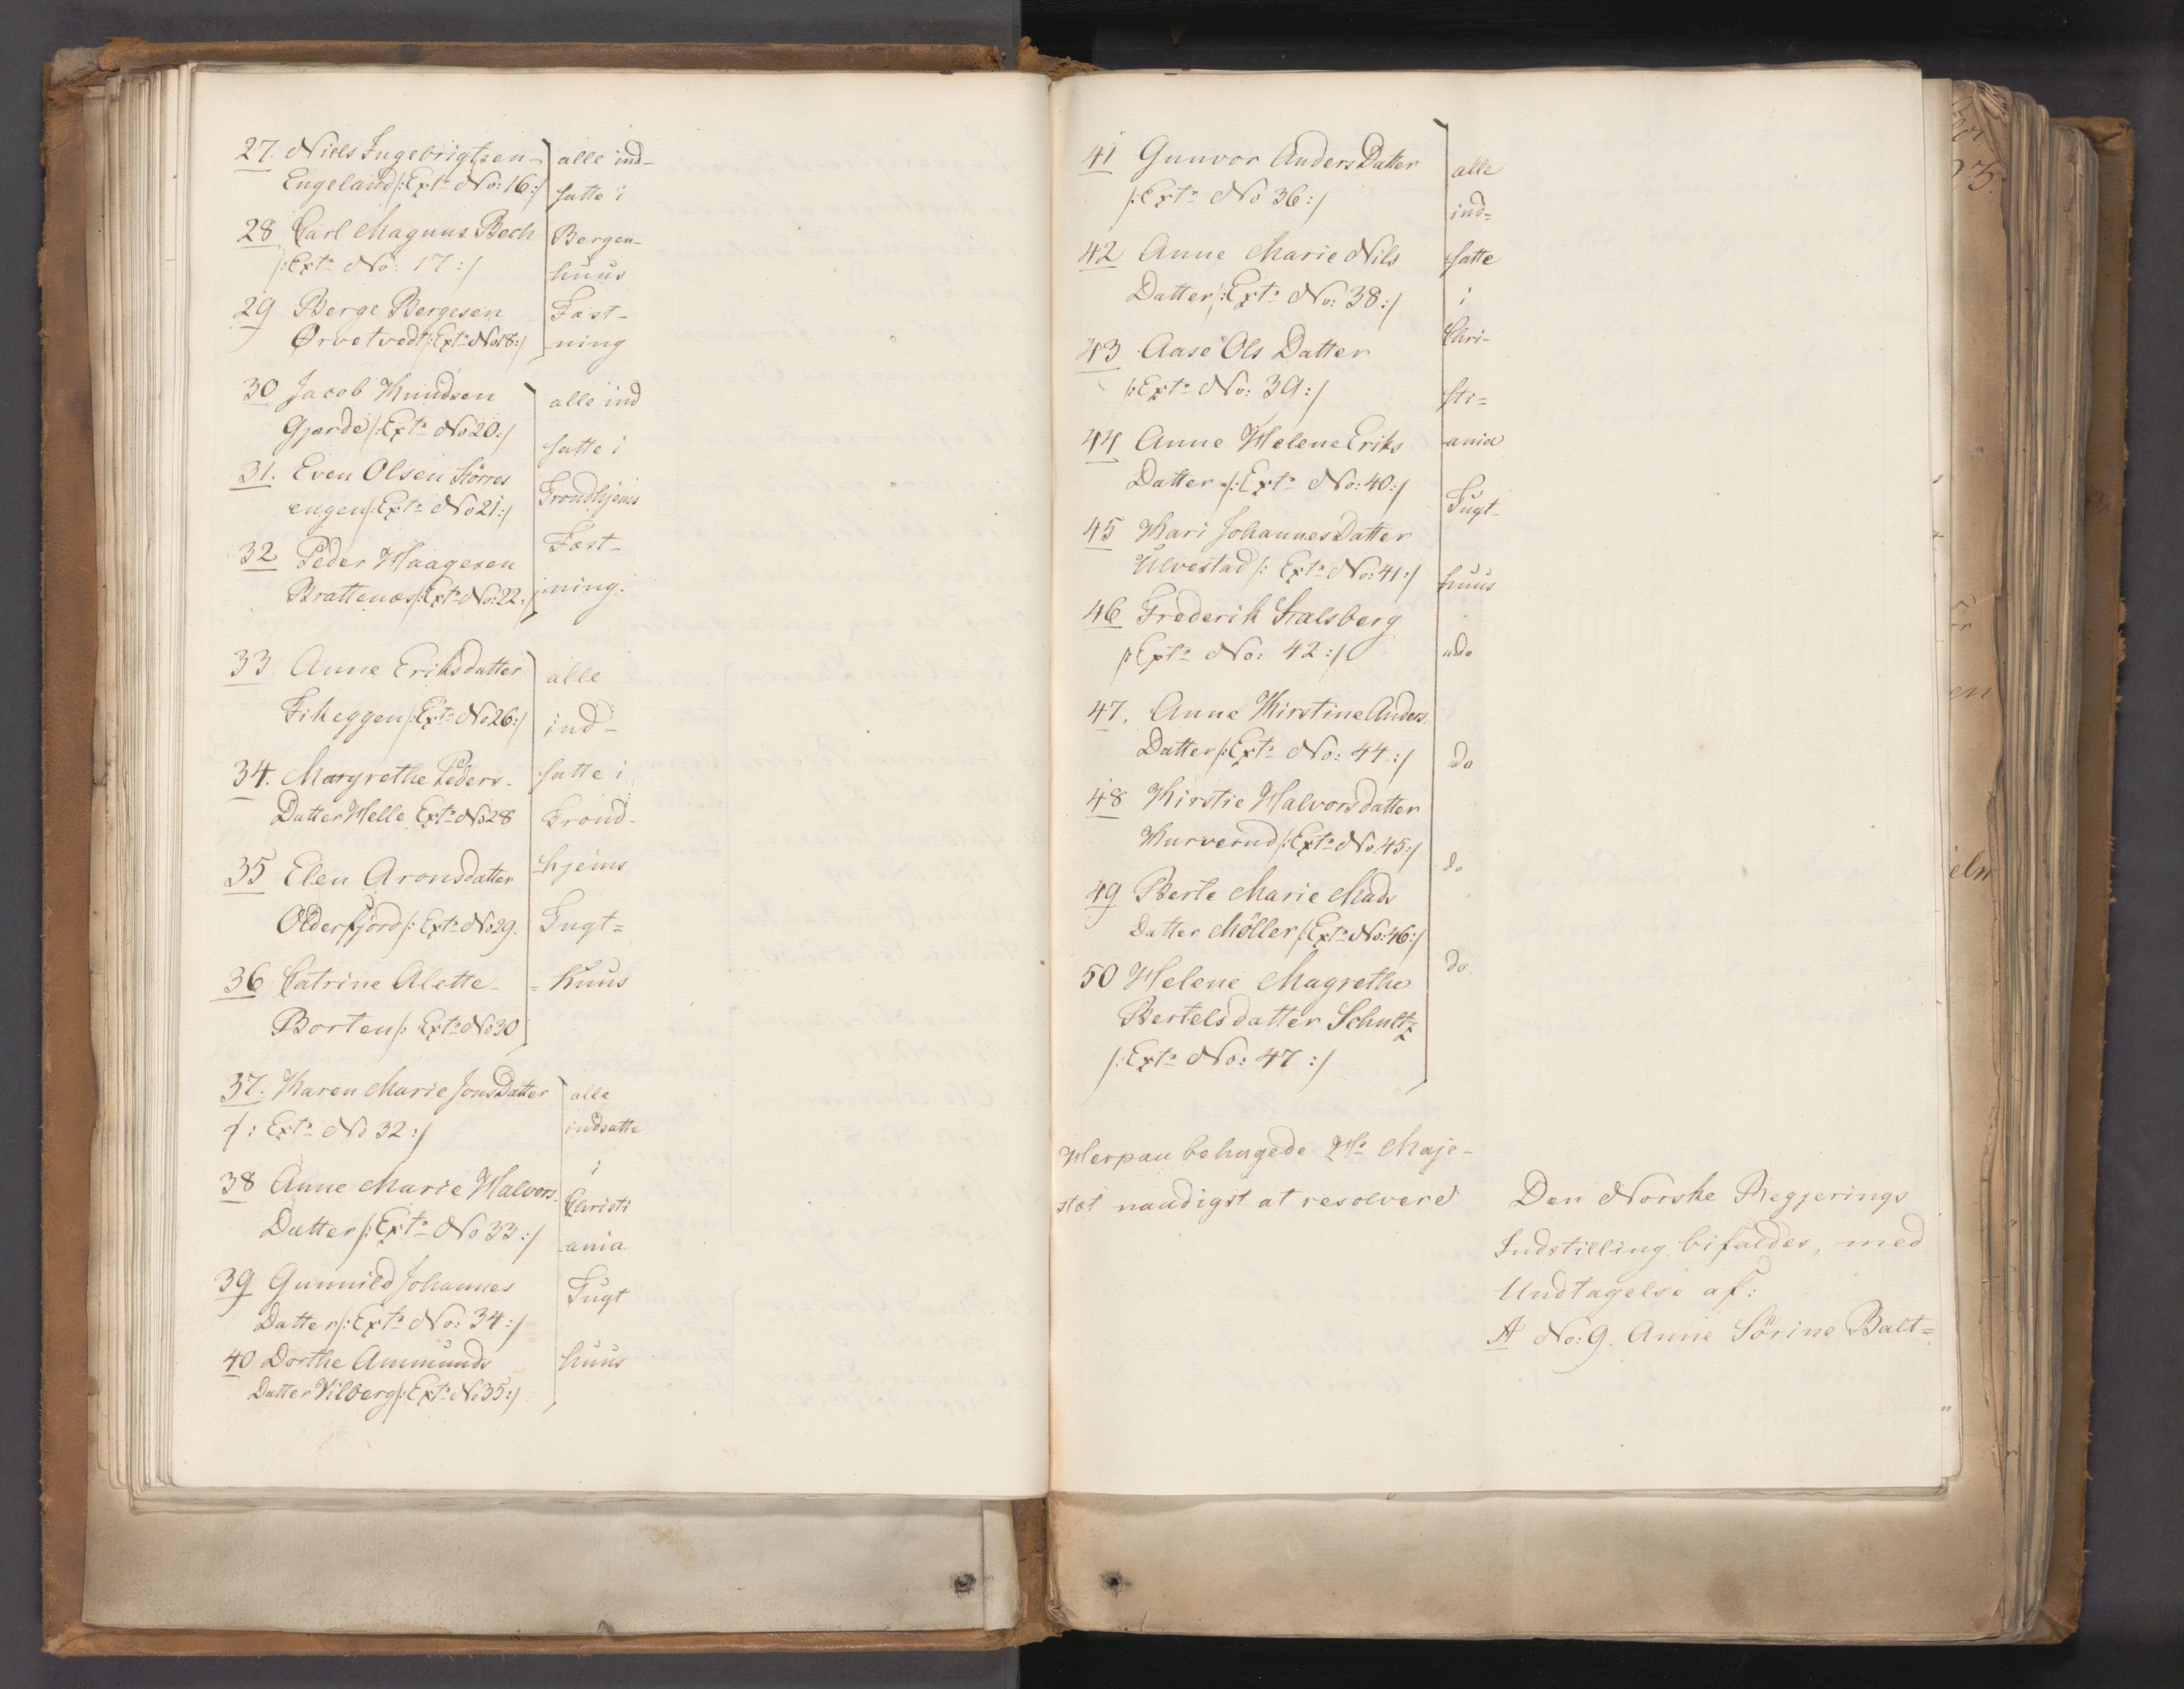 27. Niels Ingebrigtsen
Engeland /: Extr No: 16 :/
28 Carl Magnus Bech
/: Extr No: 17 :/
29 Berge Bergesen
Ørvetvedt /: Extr No 18 :/
alle ind-
satte i
Bergen-
huus
Fæst-
ning
30 Jacob Knudsen
Gjerde /: Extr No 20 :/
31. Even Olsen Störres
engen /: Extr No 21 :/
32 Peder Haagesen
Brattenæs /: Extr No: 22 :/
alle ind
satte i
Trondhjems
Fæst-
ning.
33 Anne Eriksdatter
Fikeggen /: Extr No 26 :/
34. Margrethe Peders-
Datter Helle Extr No 28
35 Elen Aronsdatter
Olderfjord /: Extr No 29.
36 Catrine Alette
Borten /: Extr No 30
alle
ind-
satte i
Trond-
hjems
Tugt=
=huus
37. Karen Marie JonsDatter
/: Extr No 32 :/
38 Anne Marie Halvors-
Datter /: Extr No 33 :/
39 Gunnild Johannes
Datter /: Extr No: 34 :/
40 Dorthe Ammunds
Datter Vilberg /: Extr No 35 :/
alle
indsatte
i
Christi
ania
Tugt
huus
41 Gunvor AndersDatter
/: Extr No 36 :/
42 Anne Marie Nils
Datter /: Extr No: 38 :/
43 Aase Ols Datter
/: Extr No: 39 :/
44 Anne Helene Eriks
Datter /: Extr No: 40 :/
45 Kari JohannesDatter
Ulvestad /: Extr No: 41 :/
46 Frederik Stalsberg
/: Extr No: 42 :/
47. Anne Kirstine Anders
Datter /: Extr No: 44 :/
48 Kirstie Halvorsdatter
Kurverud /: Extr No: 45 :/
49 Berte Marie Mads
Datter Möller /: Extr No: 46 :/
50 Helene Magrethe
Bertelsdatter Schultz
/: Extr No: 47 :/
alle
ind=
satte
i
Chri-
sti=
ania
Tugt-
huus
do
do
do.
Herpaa behagede Hs Maje-
stæt naadigst at resolvere
Den Norske Regjerings
Indstilling bifaldes, med
Undtagelse af:
A No: 9. Anne Sörine Balt=